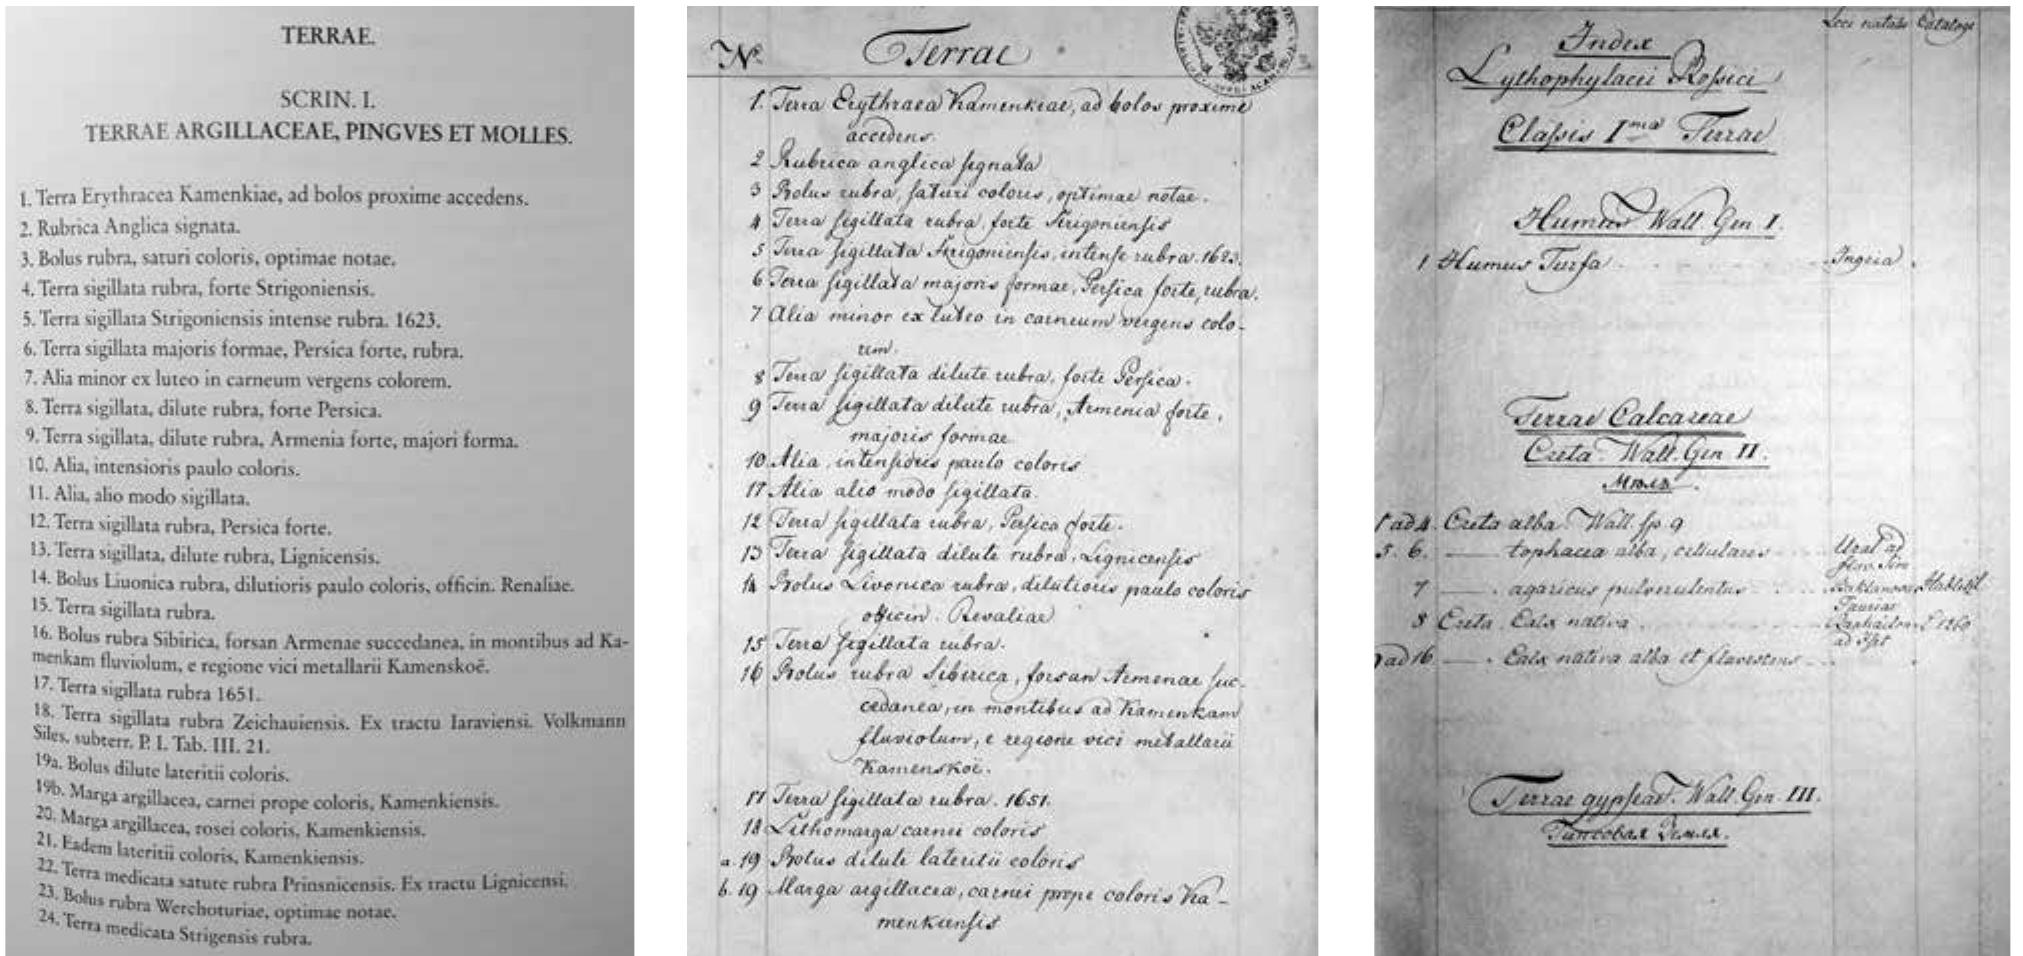 TERRAE.
SCRIN. I.
TERRAE ARGILLACEAE, PINGVES ET MOLLES.
1. Terra Erythracea Kamenkiae, ad bolos proxime accedens.
2. Rubrica Anglica signata.
3. Bolus rubra, saturi coloris, optimae notae.
4. Terra sigillata rubra, forte Strigoniensis.
5. Terra sigillata Strigoniensis intense rubra. 1623.
6. Terra sigillata majoris formae, Persica forte, rubra.
7. Alia minor ex luteo in carneum vergens colorem.
8. Terra sigillata, dilute rubra, forte Persica.
9. Terra sigillata, dilute rubra, Armenia forte, majori forma.
10. Alia, intensioris paulo coloris.
11. Alia, alio modo sigillata.
12. Terra sigillata rubra, Persica forte.
13. Terra sigillata, dilute rubra, Lignicensis.
14. Bolus Liuonica rubra, dilutioris paulo coloris, officin. Renaliae.
15. Terra sigillata rubra.
16. Bolus rubra Sibirica, forsan Armenae succedanea, in montibus ad Ka-
menkam fluviolum, e regione vici metallarii Kamenskoë.
17. Terra sigillata rubra 1651.
18. Terra sigillata rubra Zeichauiensis. Ex tractu Iaraviensi. Volkmann
Siles. subterr. P. I. Tab. III. 21.
19a. Bolus dilute lateritii coloris.
19b. Marga argillacea, carnei prope coloris, Kamenkiensis.
20. Marga argillacea, rosei coloris, Kamenkiensis.
21. Eadem lateritii coloris, Kamenkiensis.
22. Terra medicata sature rubra Prinsnicensis. Ex tractu Lignicensi.
23. Bolus rubra Werchoturiae, optimae notae.
24. Terra medicata Strigensis rubra.
N. Terrae
1. Terra Erythraea Kamenkiae, ad bolos proxime
accedens.
2 Rubrica anglica signata
3 Bolus rubra, saturi coloris, optimae notae.
4 Terra sigillata rubra, forte Strigoniensis
5 Terra sigillata Strigoniensis, intense rubra. 1623.
6 Terra sigillata majoris formae, Persica forte, rubra.
7 Alia minor ex luteo in carneum vergens colo-
rem.
8 Terra sigillata dilute rubra, forte Persica.
9 Terra sigillata dilute rubra, Armenia forte,
majoris formae
10 Alia, intensioris paulo coloris
11 Alia alio modo sigillata.
12 Terra sigillata rubra, Persica forte.
13 Terra sigillata dilute rubra, Lignicensis
14 Bolus Livonica rubra, dilutioris paulo coloris
officin. Revaliae
15 Terra sigillata rubra.
16 Bolus rubra Sibirica, forsan Armenae suc-
cedanea, in montibus ad Kamenkam
fluviolum, e regione vici metallarii
Kamenskoë.
17 Terra sigillata rubra. 1651.
18 Lithomarga carnei coloris
a. 19 Bolus dilute lateritii coloris
b. 19 Marga argillacea, carnei prope coloris Ka-
menkiensis
Loci natales Catalogi
Index
Lythophylacii Rossici
Classis I ma Terrae
Humus Wall. Gen I.
1 Humus Turfa Ingria.
Terrae Calcareae
Creta. Wall. Gen II.
Мѣлъ
1 ad 4. Creta alba. Wall. sp. 9
5. 6. — tophacea alba, cellularis Ural ad
7 — agaricus pulverulentus
8 Creta. Calx nativa
ad 16 — . Calx nativa alba et flavescens
Terrae gypseae. Wall. Gen. III.
Гипсовая Земля.